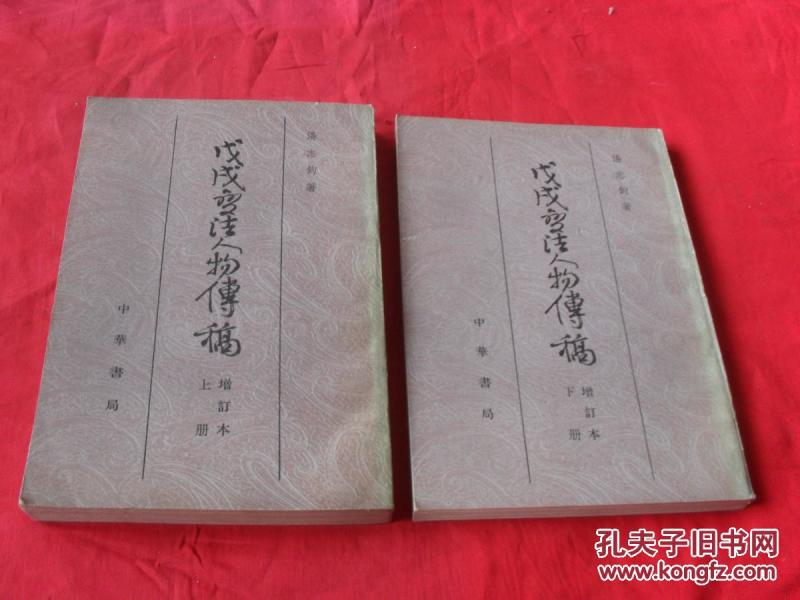 湯志鈞著
戊戌变法人物傳稿
增訂本
上册
中華書局
湯志鈞著
戊戌变法人物傳稿
增訂本
下册
中華書局
孔夫子旧书网
www.kongfz.com